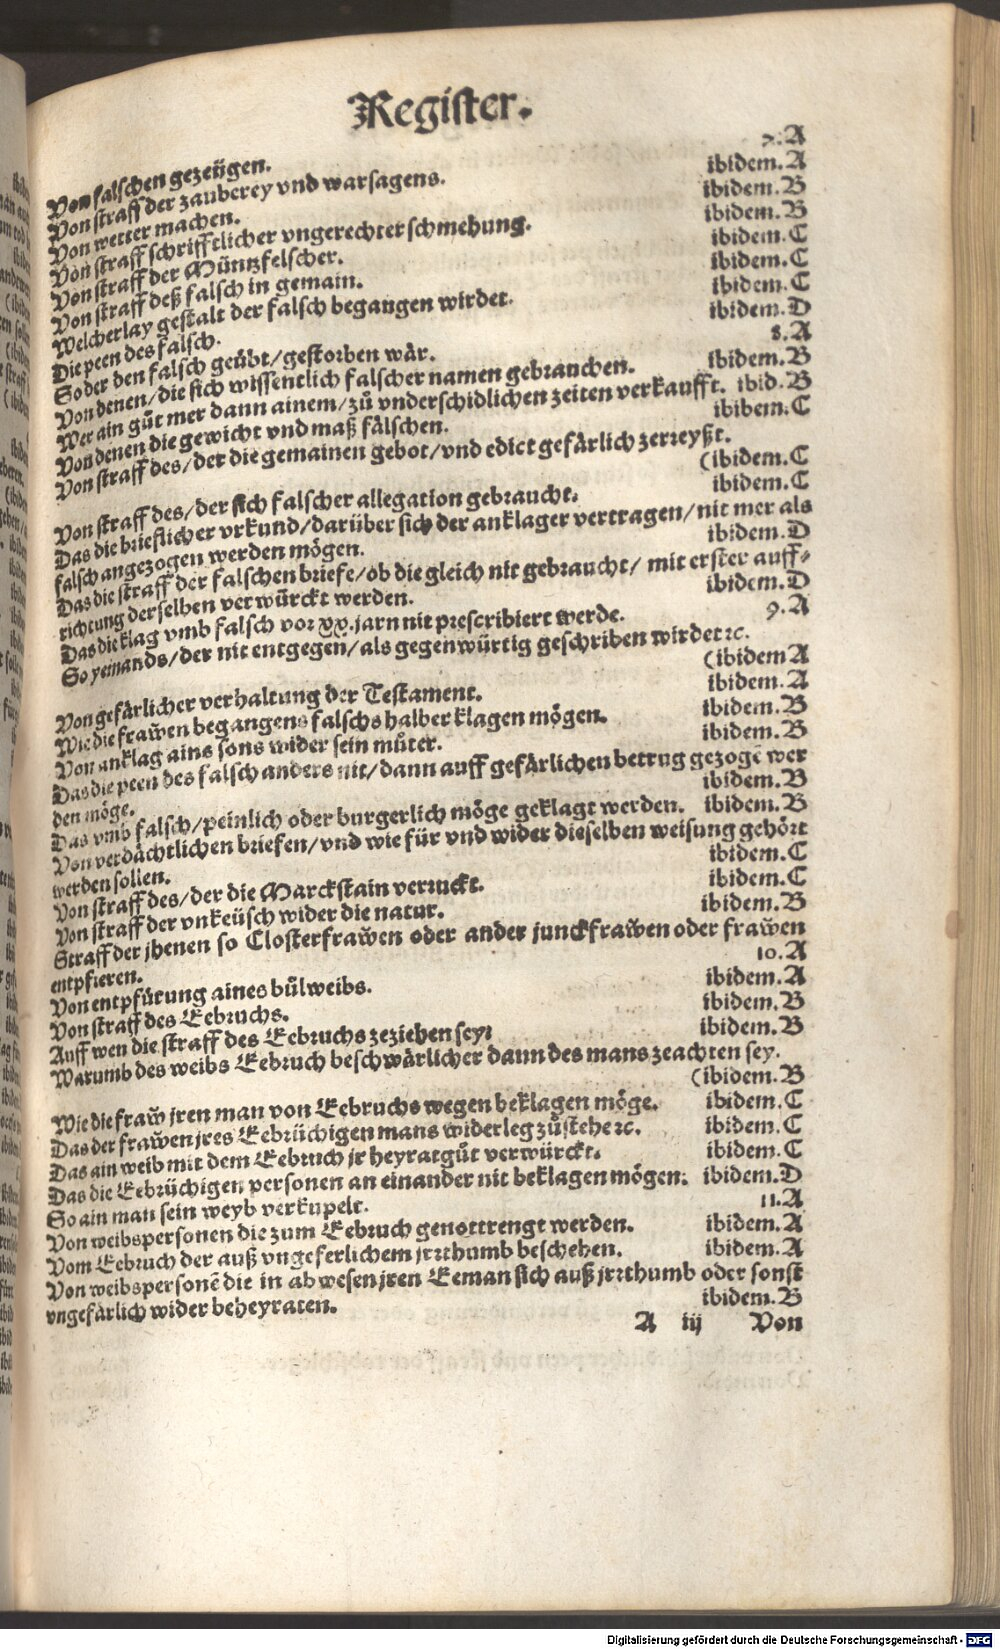 Register.
Von falschen gezeügen. 7.A
Von straff der zauberey vnd warsagens. ibidem.A
Von wetter machen. ibidem.B
Von straff schrifftlicher vngerechter schmehung. ibidem.B
Von straff der Müntzfelscher. ibidem.C
Von straff deß falsch in gemain. ibidem.C
Welcherlay gestalt der falsch begangen wirdet. ibidem.C
Die peen des falsch. ibidem.D
So der den falsch geübt/gestorben wär. 8.A
Von denen/die sich wissentlich falscher namen gebrauchen. ibidem.B
Wer ain gůt mer dann ainem/zů vnderschidlichen zeiten verkaufft. ibid.B
Von denen die gewicht vnd maß fälschen. ibibem.C
Von straff des/der die gemainen gebot/vnd edict gefärlich zerreyßt.
(ibidem.C
Von straff des/der sich falscher allegation gebraucht. ibidem.C
Das die brieflicher vrkund/darüber sich der anklager vertragen/nit mer als
falsch angezogen werden mögen. ibidem.D
Das die straff der falschen briefe/ob die gleich nit gebraucht/ mit erster auff-
richtung derselben verwürckt werden. ibidem.D
Das die klag vmb falsch vor xx.jarn nit prescribiert werde. 9.A
So yemands/der nit entgegen/als gegenwürtig geschriben wirdet ꝛc.
(ibidem A
Von gefärlicher verhaltung der Testament. ibidem.A
Wie die frawen begangens falschs halber klagen mögen. ibidem.B
Von anklag ains sons wider sein můter. ibidem.B
Das die peen des falsch anders nit/dann auff gefärlichen betrug gezogē wer
den möge. ibidem.B
Das vmb falsch/peinlich oder burgerlich möge geklagt werden. ibidem.B
Von verdächtlichen briefen/vnd wie für vnd wider dieselben weisung gehört
werden sollen. ibidem.C
Von straff des/der die Marckstain verruckt. ibidem.C
Von straff der vnkeüsch wider die natur. ibidem.B
Straff der jhenen so Closterfrawen oder ander junckfrawen oder frawen
entpfieren. 10.A
Von entpfürung aines bůlweibs. ibidem.A
Von straff des Eebruchs. ibidem.B
Auff wen die straff des Eebruchs zeziehen sey. ibidem.B
Warumb des weibs Eebruch beschwärlicher dann des mans zeachten sey.
(ibidem.B
Wie die fraw jren man von Eebruchs wegen beklagen möge. ibidem.C
Das der frawen jres Eebrüchigen mans widerleg zůstehe ꝛc. ibidem.C
Das ain weib mit dem Eebruch jr heyratgůt verwürckt. ibidem.C
Das die Eebrüchigen personen an einander nit beklagen mögen. ibidem.D
So ain man sein weyb verkupelt. 11.A
Von weibspersonen die zum Eebruch genottrengt werden. ibidem.A
Vom Eebruch der auß vngeferlichem jrrthumb beschehen. ibidem.A
Von weibspersonē die in abwesen jren Eeman sich auß jrrthumb oder sonst
vngefärlich wider beheyraten. ibidem.B
A iij Von
Digitalisierung gefördert durch die Deutsche Forschungsgemeinschaft - DFG